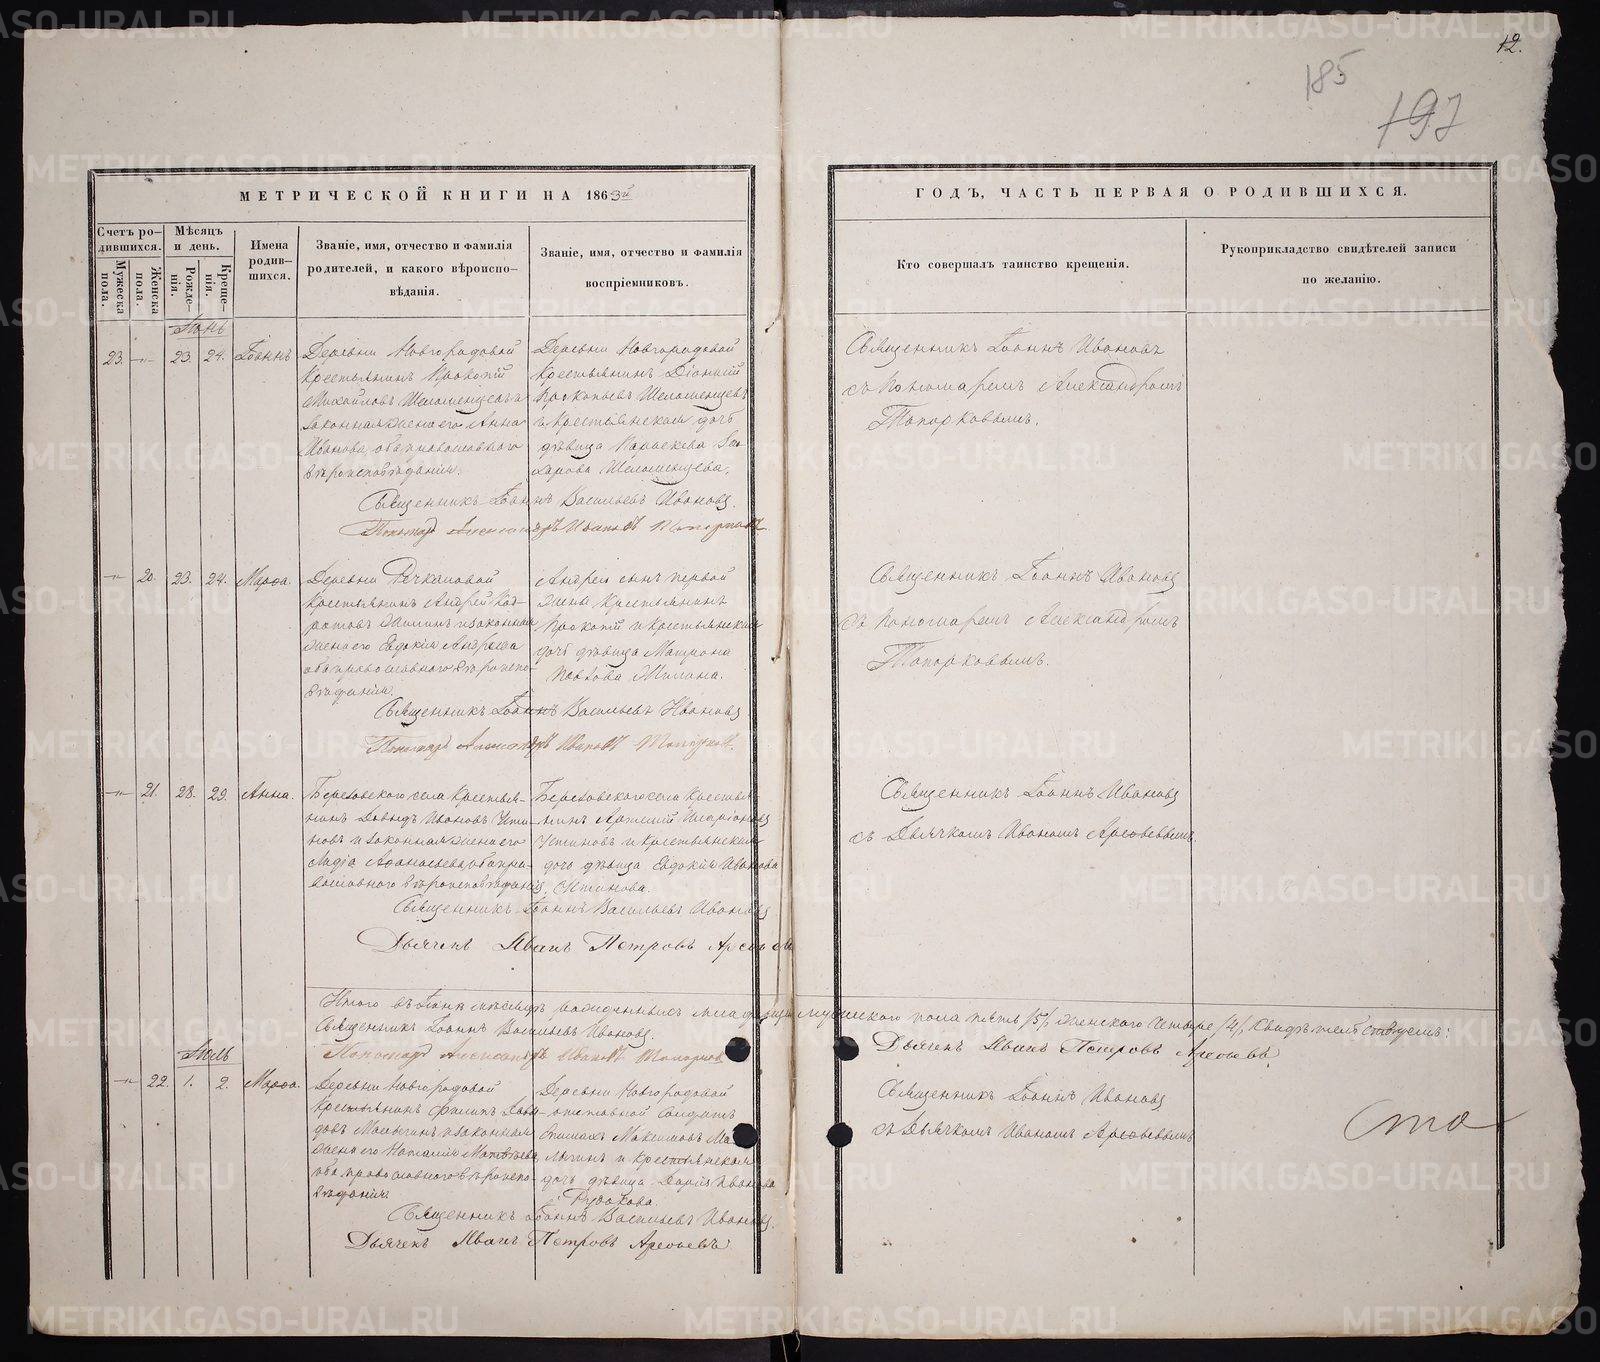 12.
185
197
МЕТРИЧЕСКОЙ КНИГИ НА 1863й
ГОДЪ, ЧАСТЬ ПЕРВАЯ О РОДИВШИХСЯ.
Счетъ родившихся.
Мужеска пола.
Женска пола.
Мѣсяцъ и день.
Рожденія.
Крещенія.
Имена родившихся.
Званіе, имя, отчество и фамилія
родителей, и какого вѣроиспо-
вѣданія.
Званіе, имя, отчество и фамилія
воспріемниковъ.
Кто совершалъ таинство крещенія.
Рукоприкладство свидѣтелей записи
по желанію.
Іюнь
23. 23. 24. Іоаннъ
Деревни Новгородовой
Крестьянинъ Прокопій
Михайловъ
законная жена его Анна
Иванова, оба православнаго
вѣроисповѣданія.
Деревни Новгородовой
Крестьянинъ Діонисій
Прокопьевъ
и Крестьянская дочь
дѣвица Параскева
Священникъ Іоаннъ Ивановъ
съ Пономаремъ Александромъ
Топорковымъ.
Священникъ Іоаннъ Васильевъ Ивановъ
Пономарь Александръ Ивановъ Топорковъ
20. 23. 24. Марѳа.
Деревни Речкаловой
Крестьянинъ Андрей
и законная
жена его Евдокія Андреева
оба православнаго вѣроиспо-
вѣданія.
Андрея сынъ первой
жены Крестьянинъ
Прокопій и Крестьянская
дочь дѣвица Матрона
Священникъ Іоаннъ Ивановъ
съ Пономаремъ Александромъ
Топорковымъ.
Священникъ Іоаннъ Васильевъ Ивановъ
Пономарь Александръ Ивановъ Топорковъ
21. 28. 29. Анна.
Березовского села Крестья-
нинъ Давидъ Ивановъ Усти-
новъ и законная жена его
Лидія Аѳанасьева, оба пра-
вославнаго вѣроисповѣданія.
Березовского села Крестья-
нинъ Артемій
Устиновъ и Крестьянская
дочь дѣвица Евдокія Иванова
Устинова.
Священникъ Іоаннъ Ивановъ
съ Дьячкомъ Иваномъ Арефьевымъ.
Священникъ Іоаннъ Васильевъ Ивановъ
Дьячекъ Иванъ Петровъ Арефьевъ
Итого въ Іюнѣ мѣсяцѣ рожденныхъ младенцевъ мужескаго пола пять /5/, женскаго четыре /4/,
Священникъ Іоаннъ Васильевъ Ивановъ.
Пономарь Александръ Ивановъ Топорковъ
Дьячекъ Иванъ Петровъ Арефьевъ.
Іюль
22. 1. 2. Марѳа.
Деревни Новгородовой
Крестьянинъ Филипъ Давы-
довъ Малыгинъ и законная
жена его Наталія Матвѣева,
оба православнаго вѣроиспо-
вѣданія
Деревни Новгородовой
отставной Солдатъ
Максимовъ Ма-
лыгинъ и Крестьянская
дочь дѣвица Дарія Иванова
Русакова
Священникъ Іоаннъ Ивановъ
съ Дьячкомъ Иваномъ Арефьевымъ
сто
Священникъ Іоаннъ Васильевъ Ивановъ.
Дьячекъ Иванъ Петровъ Арефьевъ
METRIKI.GASO-URAL.RU